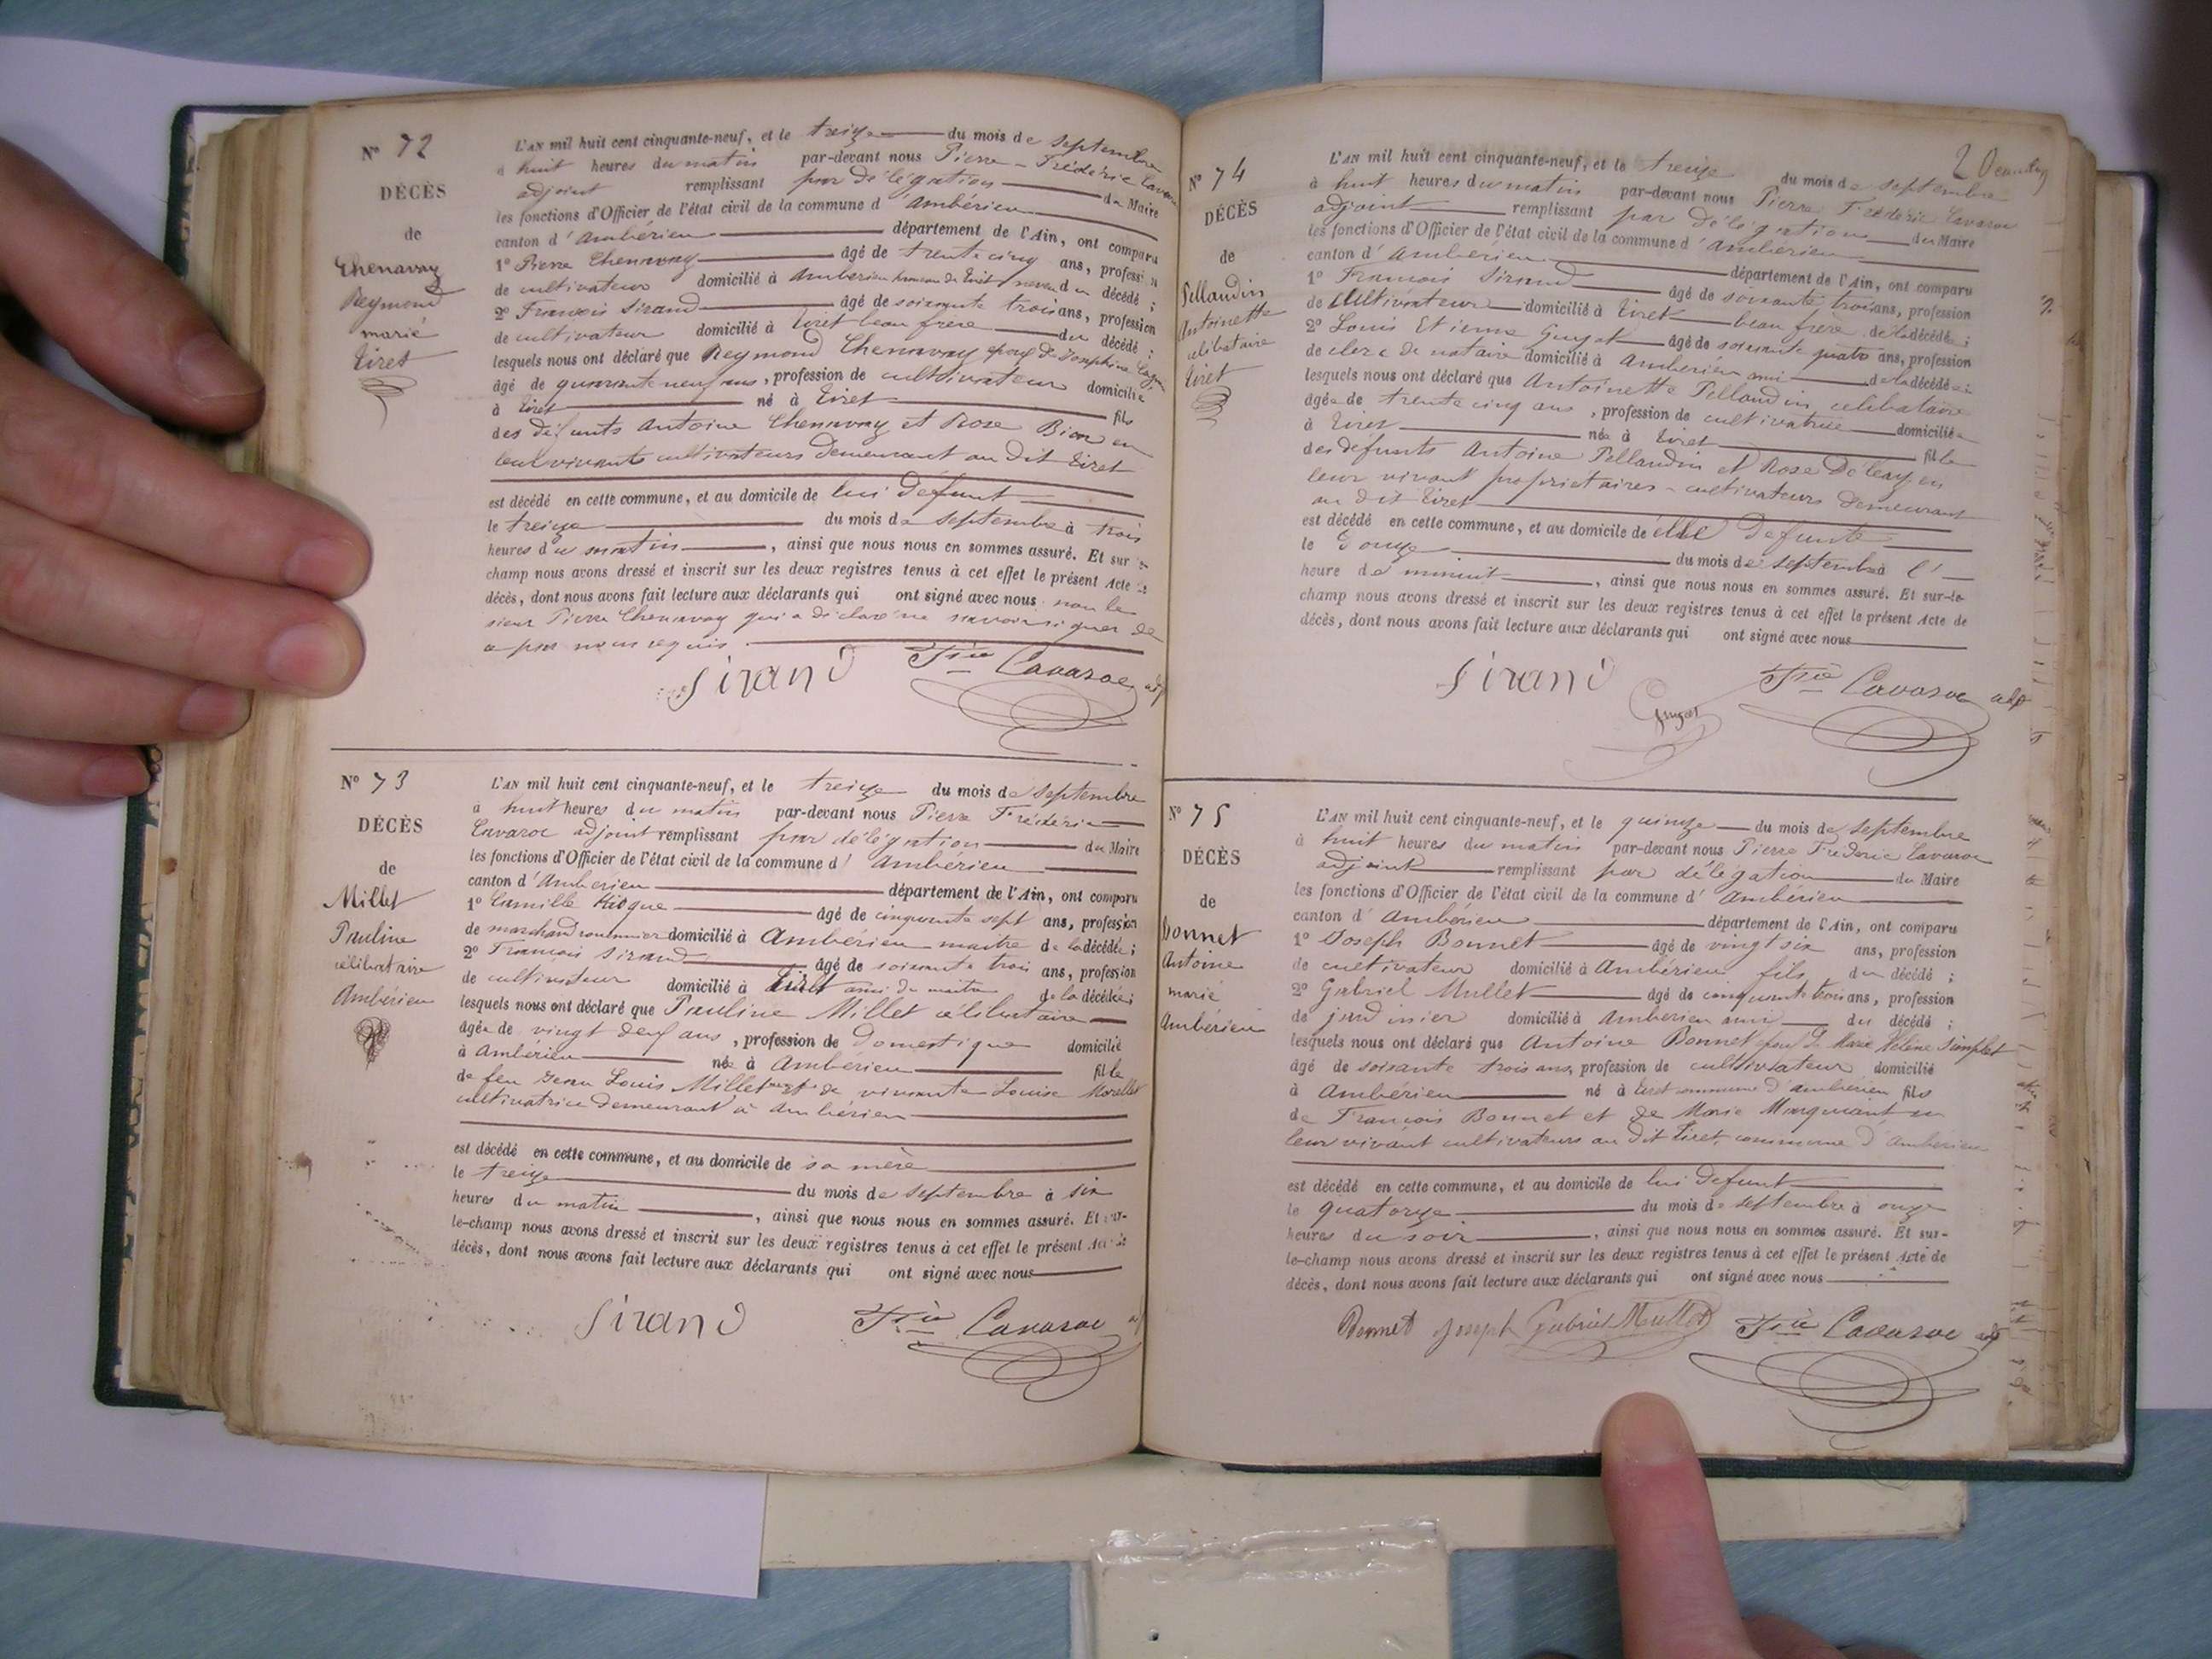 N° 72
DÉCÈS
de
Chenavay
Reymond
marié
Tiret
L'AN mil huit cent cinquante-neuf, et le treize du mois de septembre
à huit heures du matin par-devant nous Pierre-Fréderic Cavaroc
adjoint remplissant par délégation du Maire
les fonctions d'Officier de l'état civil de la commune d'Ambérieu
canton d'Ambérieu département de l'Ain, ont comparu
1° Pierre Chenavay âgé de trente cinq ans, profession
de cultivateur domicilié à Ambérieu hameau de Tiret neveu du décédé ;
2° François Sirand âgé de soixante trois ans, profession
de cultivateur domicilié à Tiret beau frère du décédé ;
lesquels nous ont déclaré que Reymond Chenavay époux de Josephine
âgé de quarante neuf ans, profession de cultivateur domicilié
à Tiret né à Tiret fils
des défunts Antoine Chenavay et Rose en
leur vivants cultivateurs demeurant au dit Tiret
est décédé en cette commune, et au domicile de lui défunt
le treize du mois de septembre à trois
heures du matin, ainsi que nous nous en sommes assuré. Et sur
champ nous avons dressé et inscrit sur les deux registres tenus à cet effet le présent Acte de
décès, dont nous avons fait lecture aux déclarants qui ont signé avec nous non le
sieur Pierre Chenavay qui a déclaré ne savoir signer de
ce par nous requis.
Sirand Fric Cavaroc adj
N° 73
DÉCÈS
de
Millet
Pauline
célibataire
Ambérieu
L'AN mil huit cent cinquante-neuf, et le treize du mois de septembre
à huit heures du matin par-devant nous Pierre Fréderic
Cavaroc adjoint remplissant par délégation du Maire
les fonctions d'Officier de l'état civil de la commune d'Ambérieu
canton d'Ambérieu département de l'Ain, ont comparu
1° Camille âgé de cinquante sept ans, profession
de marchand domicilié à Ambérieu maitre de la décédée ;
2° François Sirand âgé de soixante trois ans, profession
de cultivateur domicilié à Tiret ami du maitre de la décédée ;
lesquels nous ont déclaré que Pauline Millet célibataire
âgée de vingt deux ans, profession de domestique domicilié
à Ambérieu née à Ambérieu fille
de feu Jean Louis Millet et de vivante Louise Morellet
cultivatrice demeurant à Ambérieu
est décédé en cette commune, et au domicile de sa mère
le treize du mois de septembre à six
heures du matin, ainsi que nous nous en sommes assuré. Et sur-
le-champ nous avons dressé et inscrit sur les deux registres tenus à cet effet le présent Acte de
décès, dont nous avons fait lecture aux déclarants qui ont signé avec nous
Sirand Fric Cavaroc adj
N° 74
DÉCÈS
de
Pellaudin
Antoinette
célibataire
Tiret
L'AN mil huit cent cinquante-neuf, et le treize du mois de septembre
à huit heures du matin par-devant nous Pierre Fréderic Cavaroc
adjoint remplissant par délégation du Maire
les fonctions d'Officier de l'état civil de la commune d'Ambérieu
canton d'Ambérieu département de l'Ain, ont comparu
1° François Sirand âgé de soixante trois ans, profession
de cultivateur domicilié à Tiret beau frère de la décédée ;
2° Louis Etienne Guyot âgé de soixante quatre ans, profession
de clerc de notaire domicilié à Ambérieu ami de la décédée ;
lesquels nous ont déclaré que Antoinette Pellaudin célibataire
âgée de trente cinq ans, profession de cultivatrice domiciliée
à Tiret née à Tiret fille
des défunts Antoine Pellaudin et Rose en
leur vivant propriétaires-cultivateurs demeurant
au dit Tiret
est décédé en cette commune, et au domicile de elle défunte
le douze du mois de septembre à l'
heure de minuit, ainsi que nous nous en sommes assuré. Et sur-le-
champ nous avons dressé et inscrit sur les deux registres tenus à cet effet le présent Acte de
décès, dont nous avons fait lecture aux déclarants qui ont signé avec nous
Sirand Guyot Fric Cavaroc adj
N° 75
DÉCÈS
de
Bonnet
Antoine
marié
Ambérieu
L'AN mil huit cent cinquante-neuf, et le quinze du mois de septembre
à huit heures du matin par-devant nous Pierre Fréderic Cavaroc
adjoint remplissant par délégation du Maire
les fonctions d'Officier de l'état civil de la commune d'Ambérieu
canton d'Ambérieu département de l'Ain, ont comparu
1° Joseph Bonnet âgé de vingt six ans, profession
de cultivateur domicilié à Ambérieu fils du décédé ;
2° Gabriel Mullet âgé de cinquante trois ans, profession
de jardinier domicilié à Ambérieu ami du décédé ;
lesquels nous ont déclaré que Antoine Bonnet époux de Marie Hélène Simplet
âgé de soixante trois ans, profession de cultivateur domicilié
à Ambérieu né à Tiret commune d'Ambérieu fils
de François Bonnet et de Marie Marquant en
leur vivant cultivateurs au dit Tiret, commune d'Ambérieu
est décédé en cette commune, et au domicile de lui défunt
le quatorze du mois de septembre à onze
heures du soir, ainsi que nous nous en sommes assuré. Et sur-
le-champ nous avons dressé et inscrit sur les deux registres tenus à cet effet le présent Acte de
décès, dont nous avons fait lecture aux déclarants qui ont signé avec nous
Bonnet Joseph Gabriel Mullet Fric Cavaroc adj